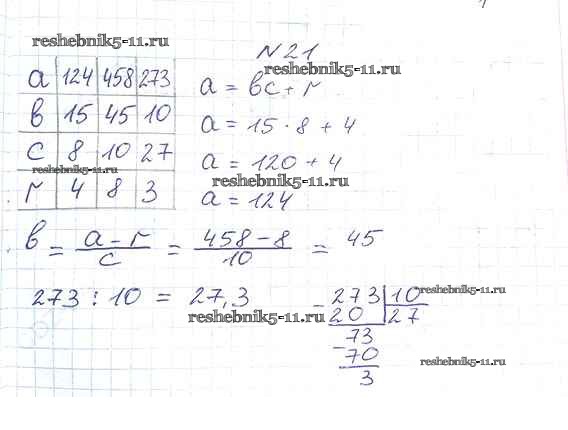 reshebnik5-11.ru
N21
reshebnik5-11.ru
a 124 458 273
a = bc + r
b 15 45 10
a = 15 · 8 + 4
c 8 10 27
a = 120 + 4
reshebnik5-11.ru
reshebnik5-11.ru
r 4 8 3
a = 124
b = (a - r)/c = (458 - 8)/10 = 45
273 : 10 = 27,3
reshebnik5-11.ru
273 | 10
- 20 | 27
reshebnik5-11.ru
reshebnik5-11.ru
73
- 70
reshebnik5-11.ru
3